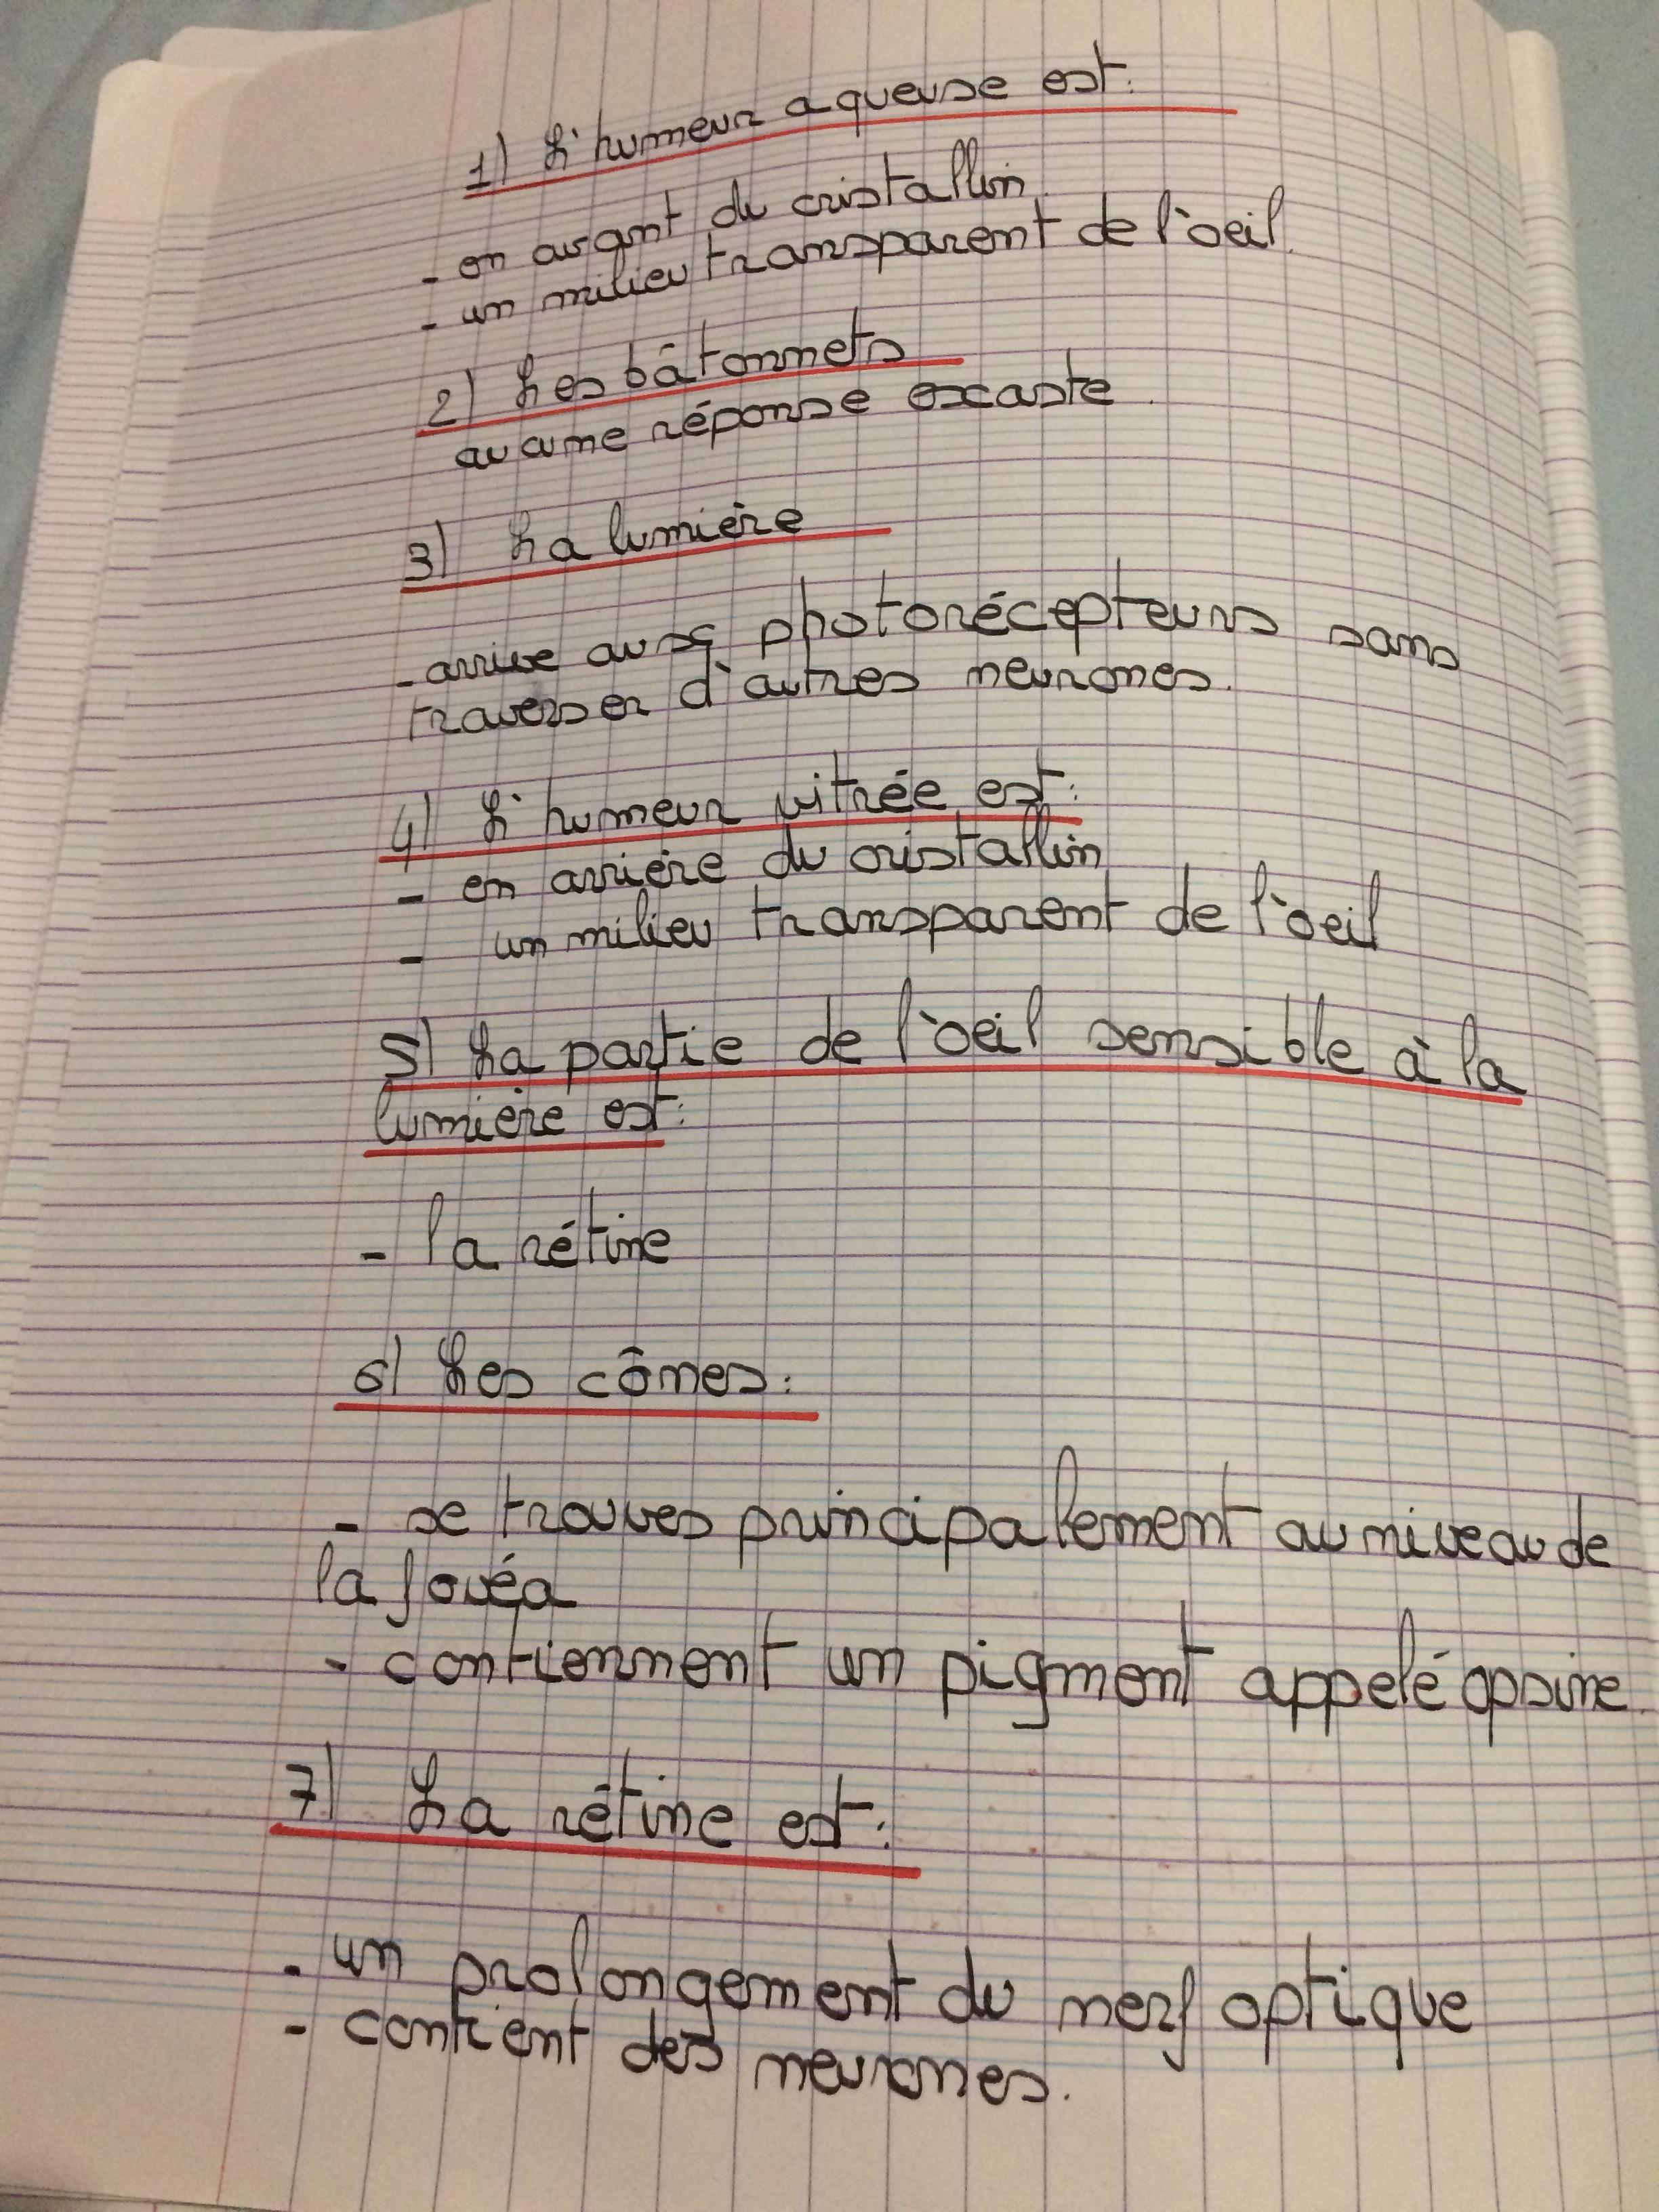 1) L'humeur aqueuse est:
- en avant du cristallin.
- un milieu transparent de l'oeil.
2) Les bâtonnets
aucune réponse excaste.
3) La lumière
- arrive aux photorécepteurs sans
traverser d'autres neurones.
4) L'humeur vitrée est:
- en arrière du cristallin
- un milieu transparent de l'oeil
5) La partie de l'oeil sensible à la
lumière est:
- la rétine
6) Les cônes:
- se trouves principalement au niveau de
la fovéa
- contiennent un pigment appelé opsine.
7) La rétine est:
- un prolongement du nerf optique
- contient des neurones.